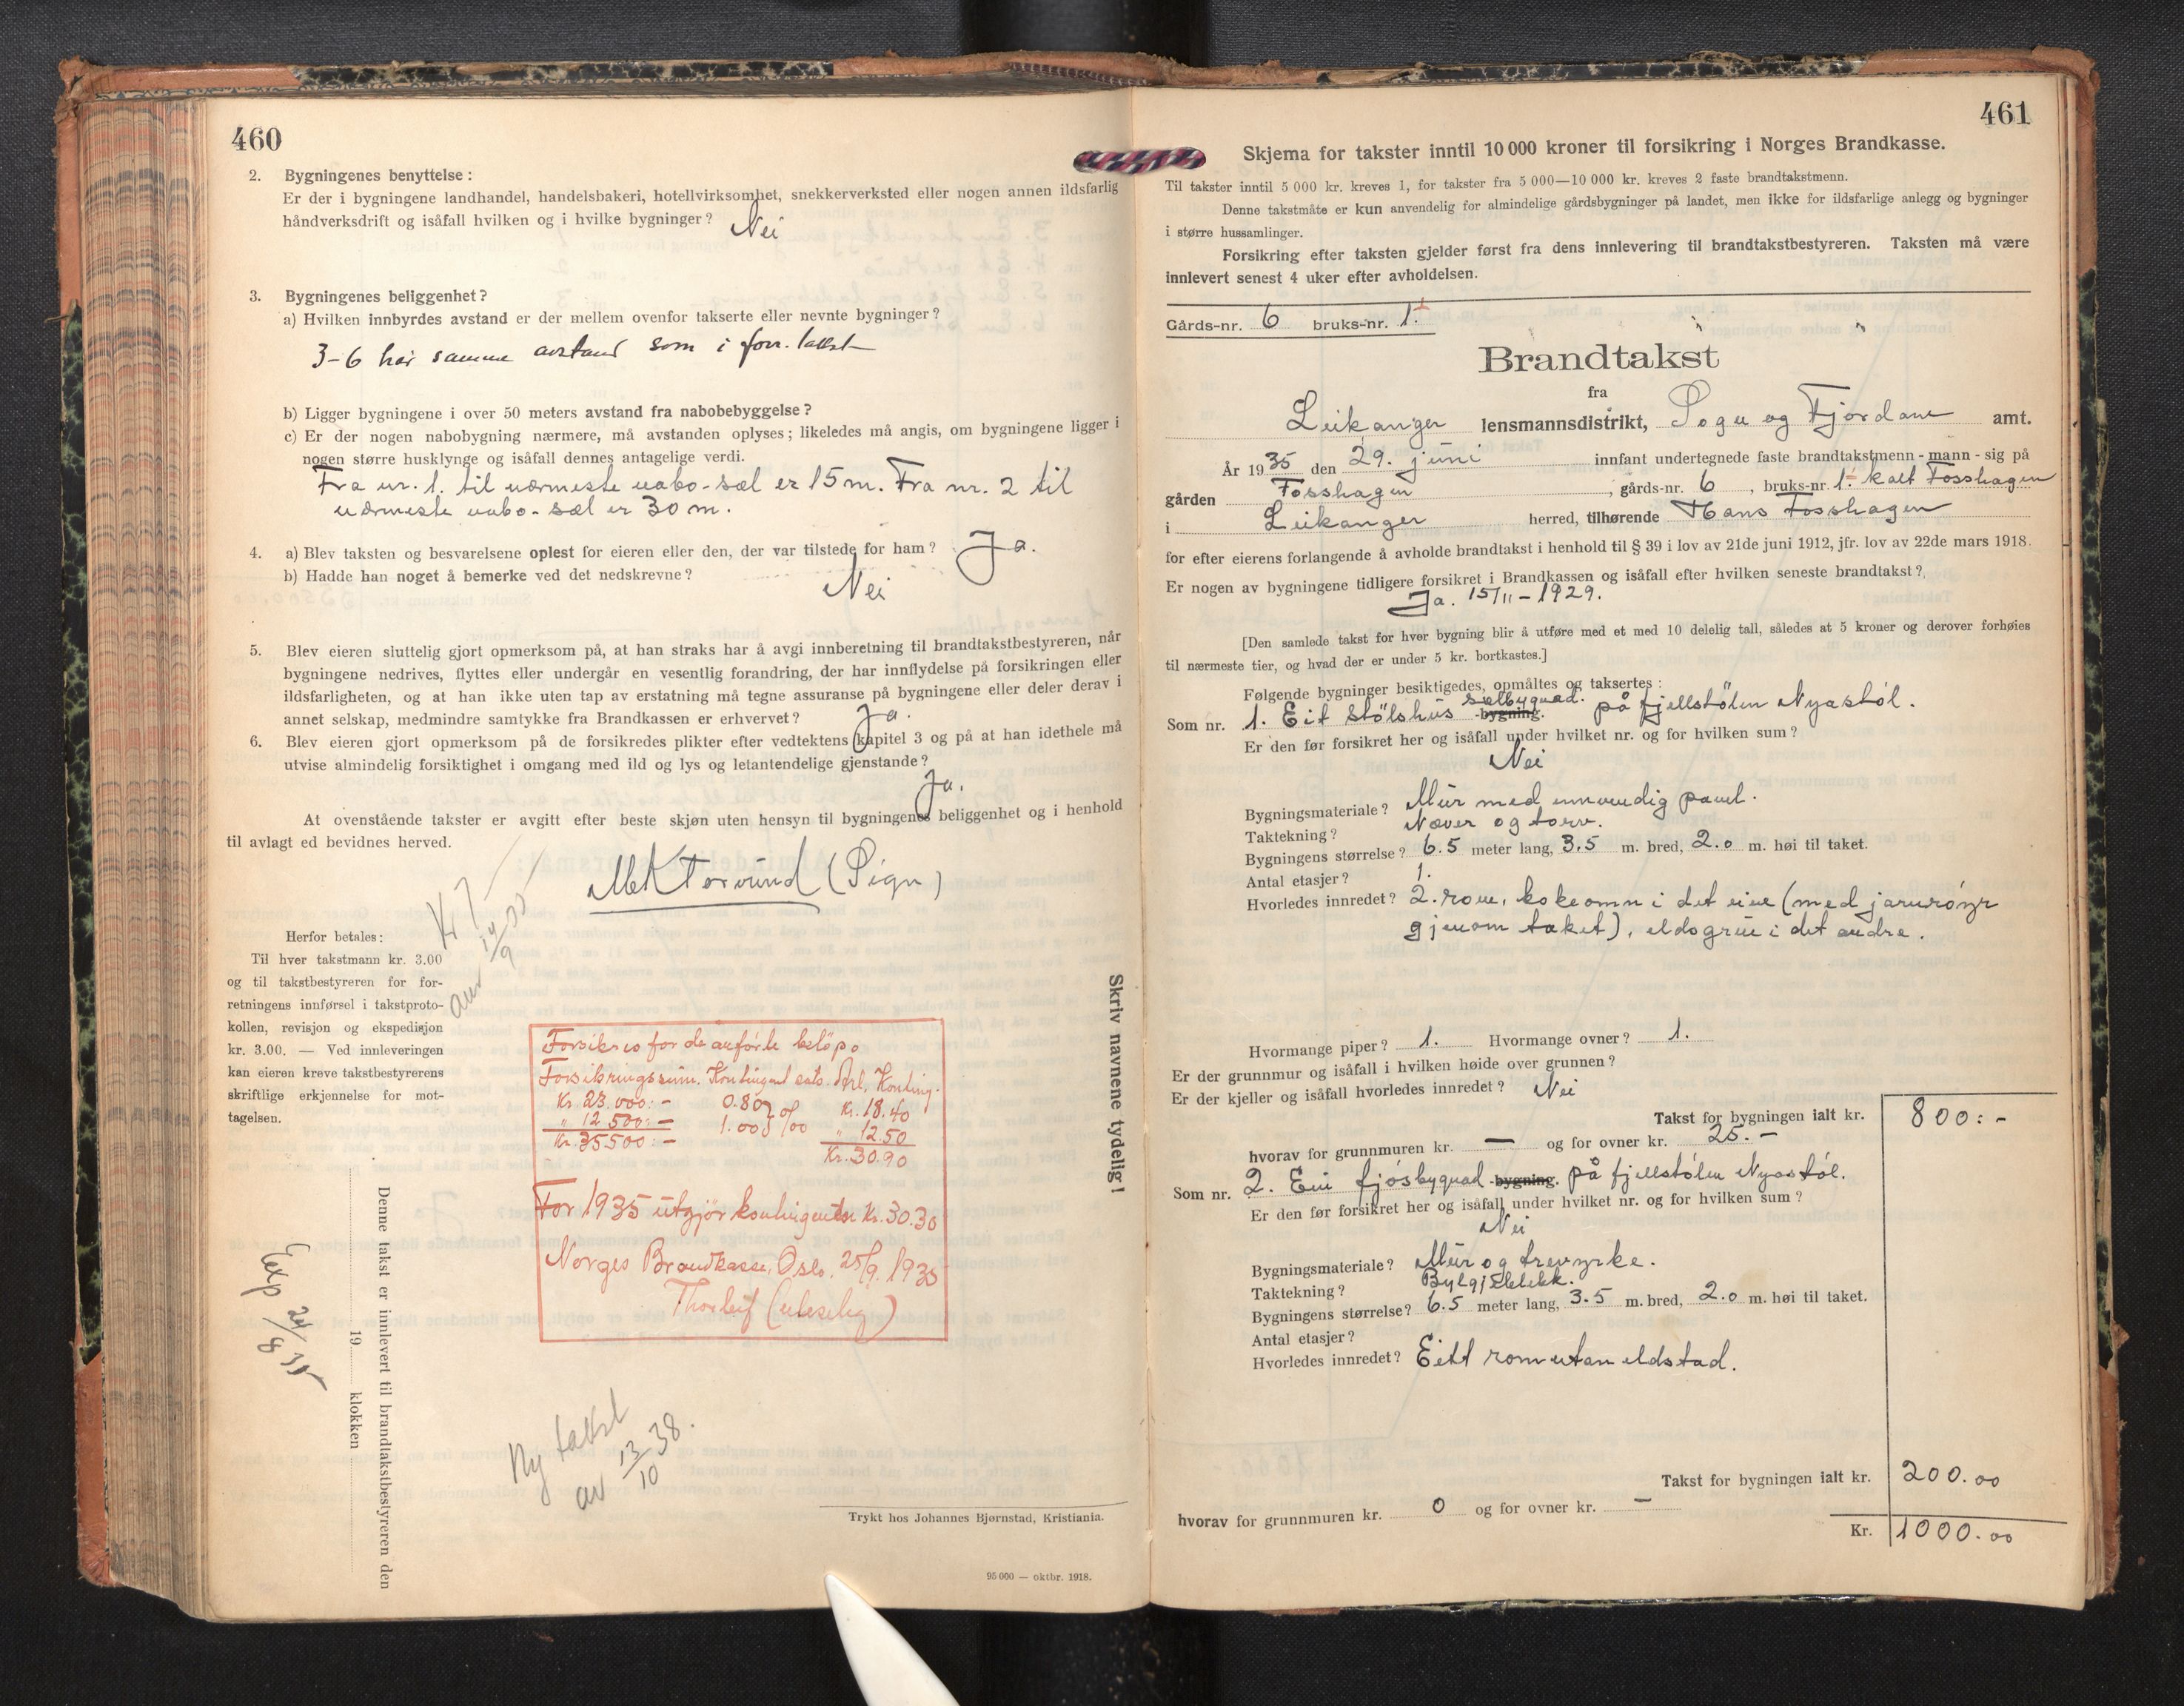 460
2. Bygningenes benyttelse:
Er der i bygningene landhandel, handelsbakeri, hotellvirksomhet, snekkerverksted eller nogen annen ildsfarlig
håndverksdrift og isåfall hvilken og i hvilke bygninger? Nei
3. Bygningenes beliggenhet?
a) Hvilken innbyrdes avstand er der mellem ovenfor takserte eller nevnte bygninger?
3-6 har samme avstand som i forr. takst
b) Ligger bygningene i over 50 meters avstand fra nabobebyggelse?
c) Er der nogen nabobygning nærmere, må avstanden oplyses; likeledes må angis, om bygningene ligger i
nogen større husklynge og isåfall dennes antagelige verdi.
Fra nr. 1. til nærmeste nabo-sæl er 15 m. Fra nr. 2 til
nærmeste nabo-sæl er 30 m.
4. a) Blev taksten og besvarelsene oplest for eieren eller den, der var tilstede for ham? Ja.
b) Hadde han noget å bemerke ved det nedskrevne? Nei
5. Blev eieren sluttelig gjort opmerksom på, at han straks har å avgi innberetning til brandtakstbestyreren, når
bygningene nedrives, flyttes eller undergår en vesentlig forandring, der har innflydelse på forsikringen eller
ildsfarligheten, og at han ikke uten tap av erstatning må tegne assuranse på bygningene eller deler derav i
annet selskap, medmindre samtykke fra Brandkassen er erhvervet? Ja.
6. Blev eieren gjort opmerksom på de forsikredes plikter efter vedtektens kapitel 3 og på at han idethele må
utvise almindelig forsiktighet i omgang med ild og lys og letantendelige gjenstande?
Ja.
At ovenstående takster er avgitt efter beste skjøn uten hensyn til bygningenes beliggenhet og i henhold
til avlagt ed bevidnes herved.
(Sign)
Herfor betales:
Til hver takstmann kr. 3.00
og til takstbestyreren for for-
retningens innførsel i takstproto-
kollen, revisjon og ekspedisjon
kr. 3.00. — Ved innleveringen
kan eieren kreve takstbestyrerens
skriftlige erkjennelse for mot-
tagelsen.
Forsikres for de anførte beløp.
Forsikringssum. Kontingent sats. Årl. Konting.
Kr. 23.000:- 0.80 o/oo Kr. 18.40
" 12 500:- 1.00 " 12.50
Kr. 35500:- Kr. 30.90
For 1935 utgjør kontingenten Kr. 30.30
Norges Brandkasse, Oslo. 25/9. 1935
Thorleif (uleselig)
Denne takst er innlevert til brandtakstbestyreren den
19 klokken
Exp 24/8 35
Ny takst
av 13/10 38.
Skriv navnene tydelig!
Trykt hos Johannes Bjørnstad, Kristiania.
95 000 — oktbr. 1918.
461
Skjema for takster inntil 10 000 kroner til forsikring i Norges Brandkasse.
Til takster inntil 5 000 kr. kreves 1, for takster fra 5 000—10 000 kr. kreves 2 faste brandtakstmenn.
Denne takstmåte er kun anvendelig for almindelige gårdsbygninger på landet, men ikke for ildsfarlige anlegg og bygninger
i større hussamlinger.
Forsikring efter taksten gjelder først fra dens innlevering til brandtakstbestyreren. Taksten må være
innlevert senest 4 uker efter avholdelsen.
Gårds-nr. 6 bruks-nr. 1.
Brandtakst
fra
Leikanger lensmannsdistrikt, Sogn og Fjordane amt.
År 1935 den 29. juni innfant undertegnede faste brandtakstmenn - mann - sig på
gården Fosshagen, gårds-nr. 6, bruks-nr. 1. kalt Fosshagen
i Leikanger herred, tilhørende Hans Fosshagen
for efter eierens forlangende å avholde brandtakst i henhold til § 39 i lov av 21de juni 1912, jfr. lov av 22de mars 1918.
Er nogen av bygningene tidligere forsikret i Brandkassen og isåfall efter hvilken seneste brandtakst?
Ja. 15/11 - 1929.
[Den samlede takst for hver bygning blir å utføre med et med 10 delelig tall, således at 5 kroner og derover forhøies
til nærmeste tier, og hvad der er under 5 kr. bortkastes.]
Følgende bygninger besiktigedes, opmåltes og taksertes:
Som nr. 1. Eit stølshus sælbygnad. -bygning. på fjellstølen Nyastøl.
Er den før forsikret her og isåfall under hvilket nr. og for hvilken sum?
Nei
Bygningsmateriale? Mur med innvendig panel.
Taktekning? Næver og torv.
Bygningens størrelse? 6.5 meter lang, 3.5 m. bred, 2.0 m. høi til taket.
Antal etasjer? 1.
Hvorledes innredet? 2. rom, kokeomn i det eine (med jarnrøyr
gjenom taket), eldsgrue i det andre.
Hvormange piper? 1. Hvormange ovner? 1.
Er der grunnmur og isåfall i hvilken høide over grunnen?
Er der kjeller og isåfall hvorledes innredet? Nei
Takst for bygningen ialt kr. 800:-
hvorav for grunnmuren kr. — og for ovner kr. 25.-
Som nr. 2. Ein fjøsbygnad -bygning. på fjellstølen Nyastøl.
Er den før forsikret her og isåfall under hvilket nr. og for hvilken sum?
Nei
Bygningsmateriale? Mur og trevyrke.
Taktekning? Bylgjeblekk.
Bygningens størrelse? 6.5 meter lang, 3.5 m. bred, 2.0 m. høi til taket.
Antal etasjer?
Hvorledes innredet? Eitt rom utan eldstad.
Takst for bygningen ialt kr. 200.00
hvorav for grunnmuren kr. 0 og for ovner kr. -
Kr. 1000.00